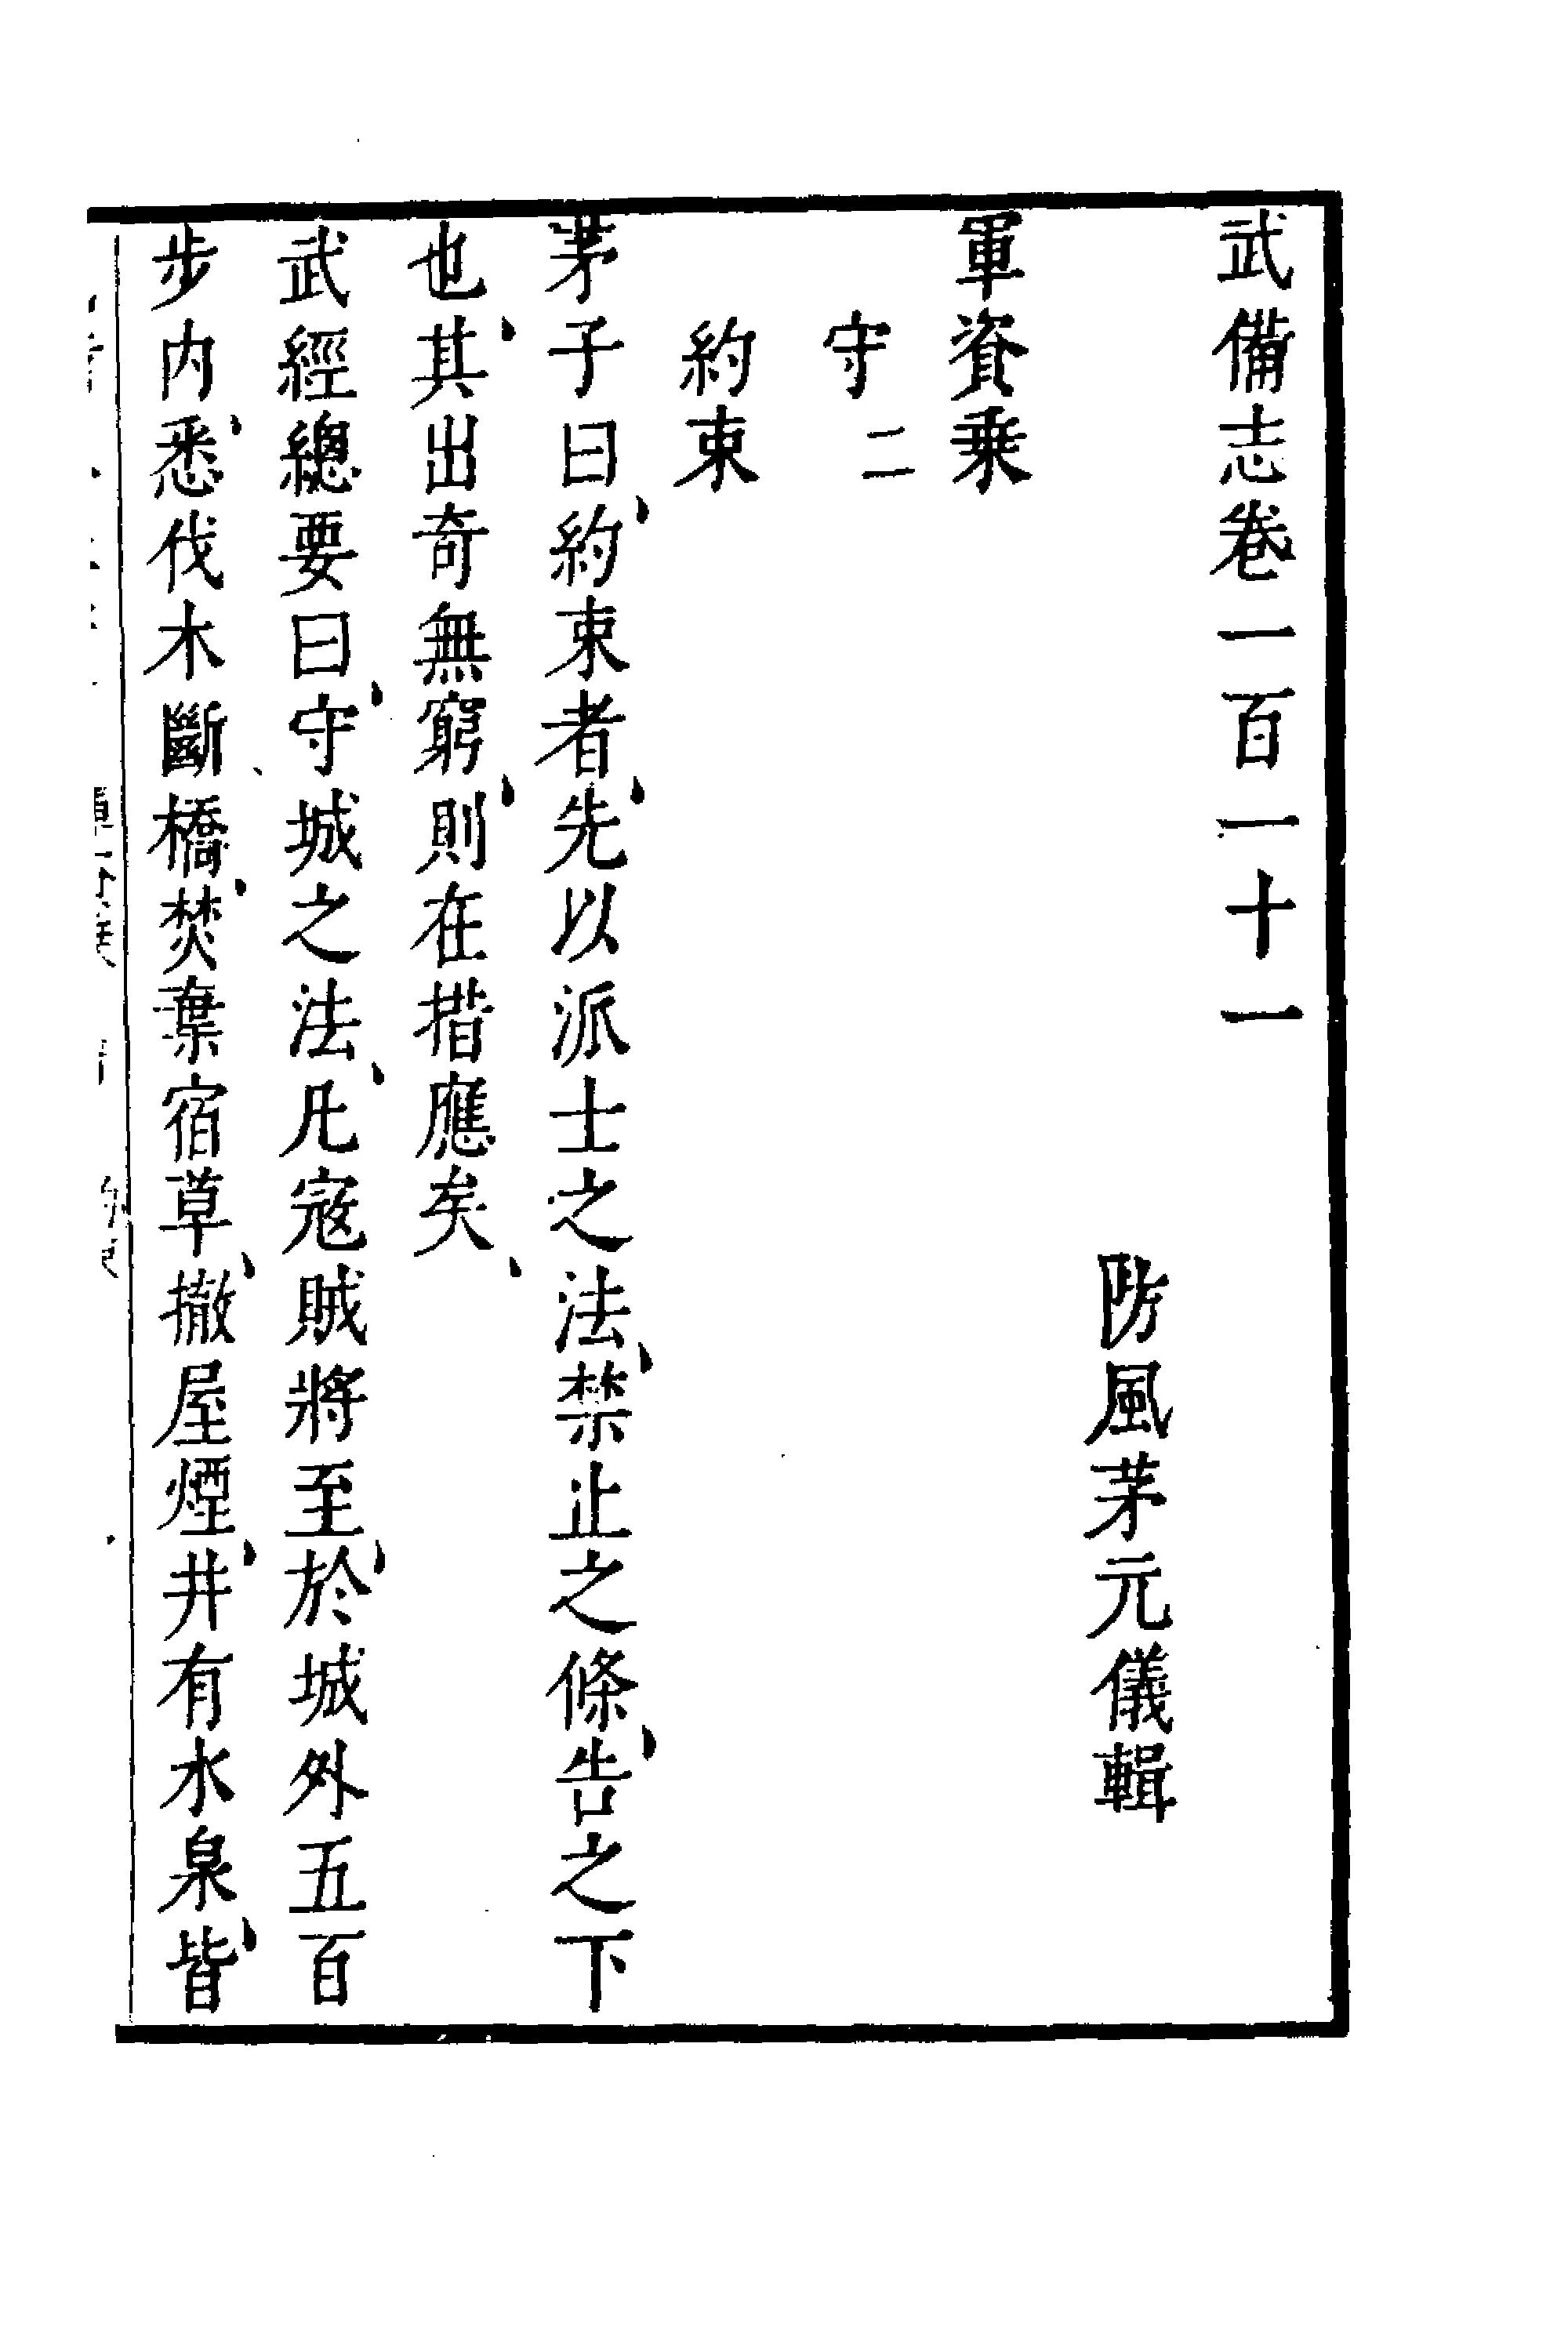 武備志卷一百一十一
防風茅元儀輯
軍資乗
守二
約束
茅子曰約束者先以派士之法禁止之條告之下
也其出奇無窮則在措應矣
武經總要曰守城之法凡寇賊將至於城外五百
步内悉伐木斷橋焚棄宿草撤屋煙井有水泉皆